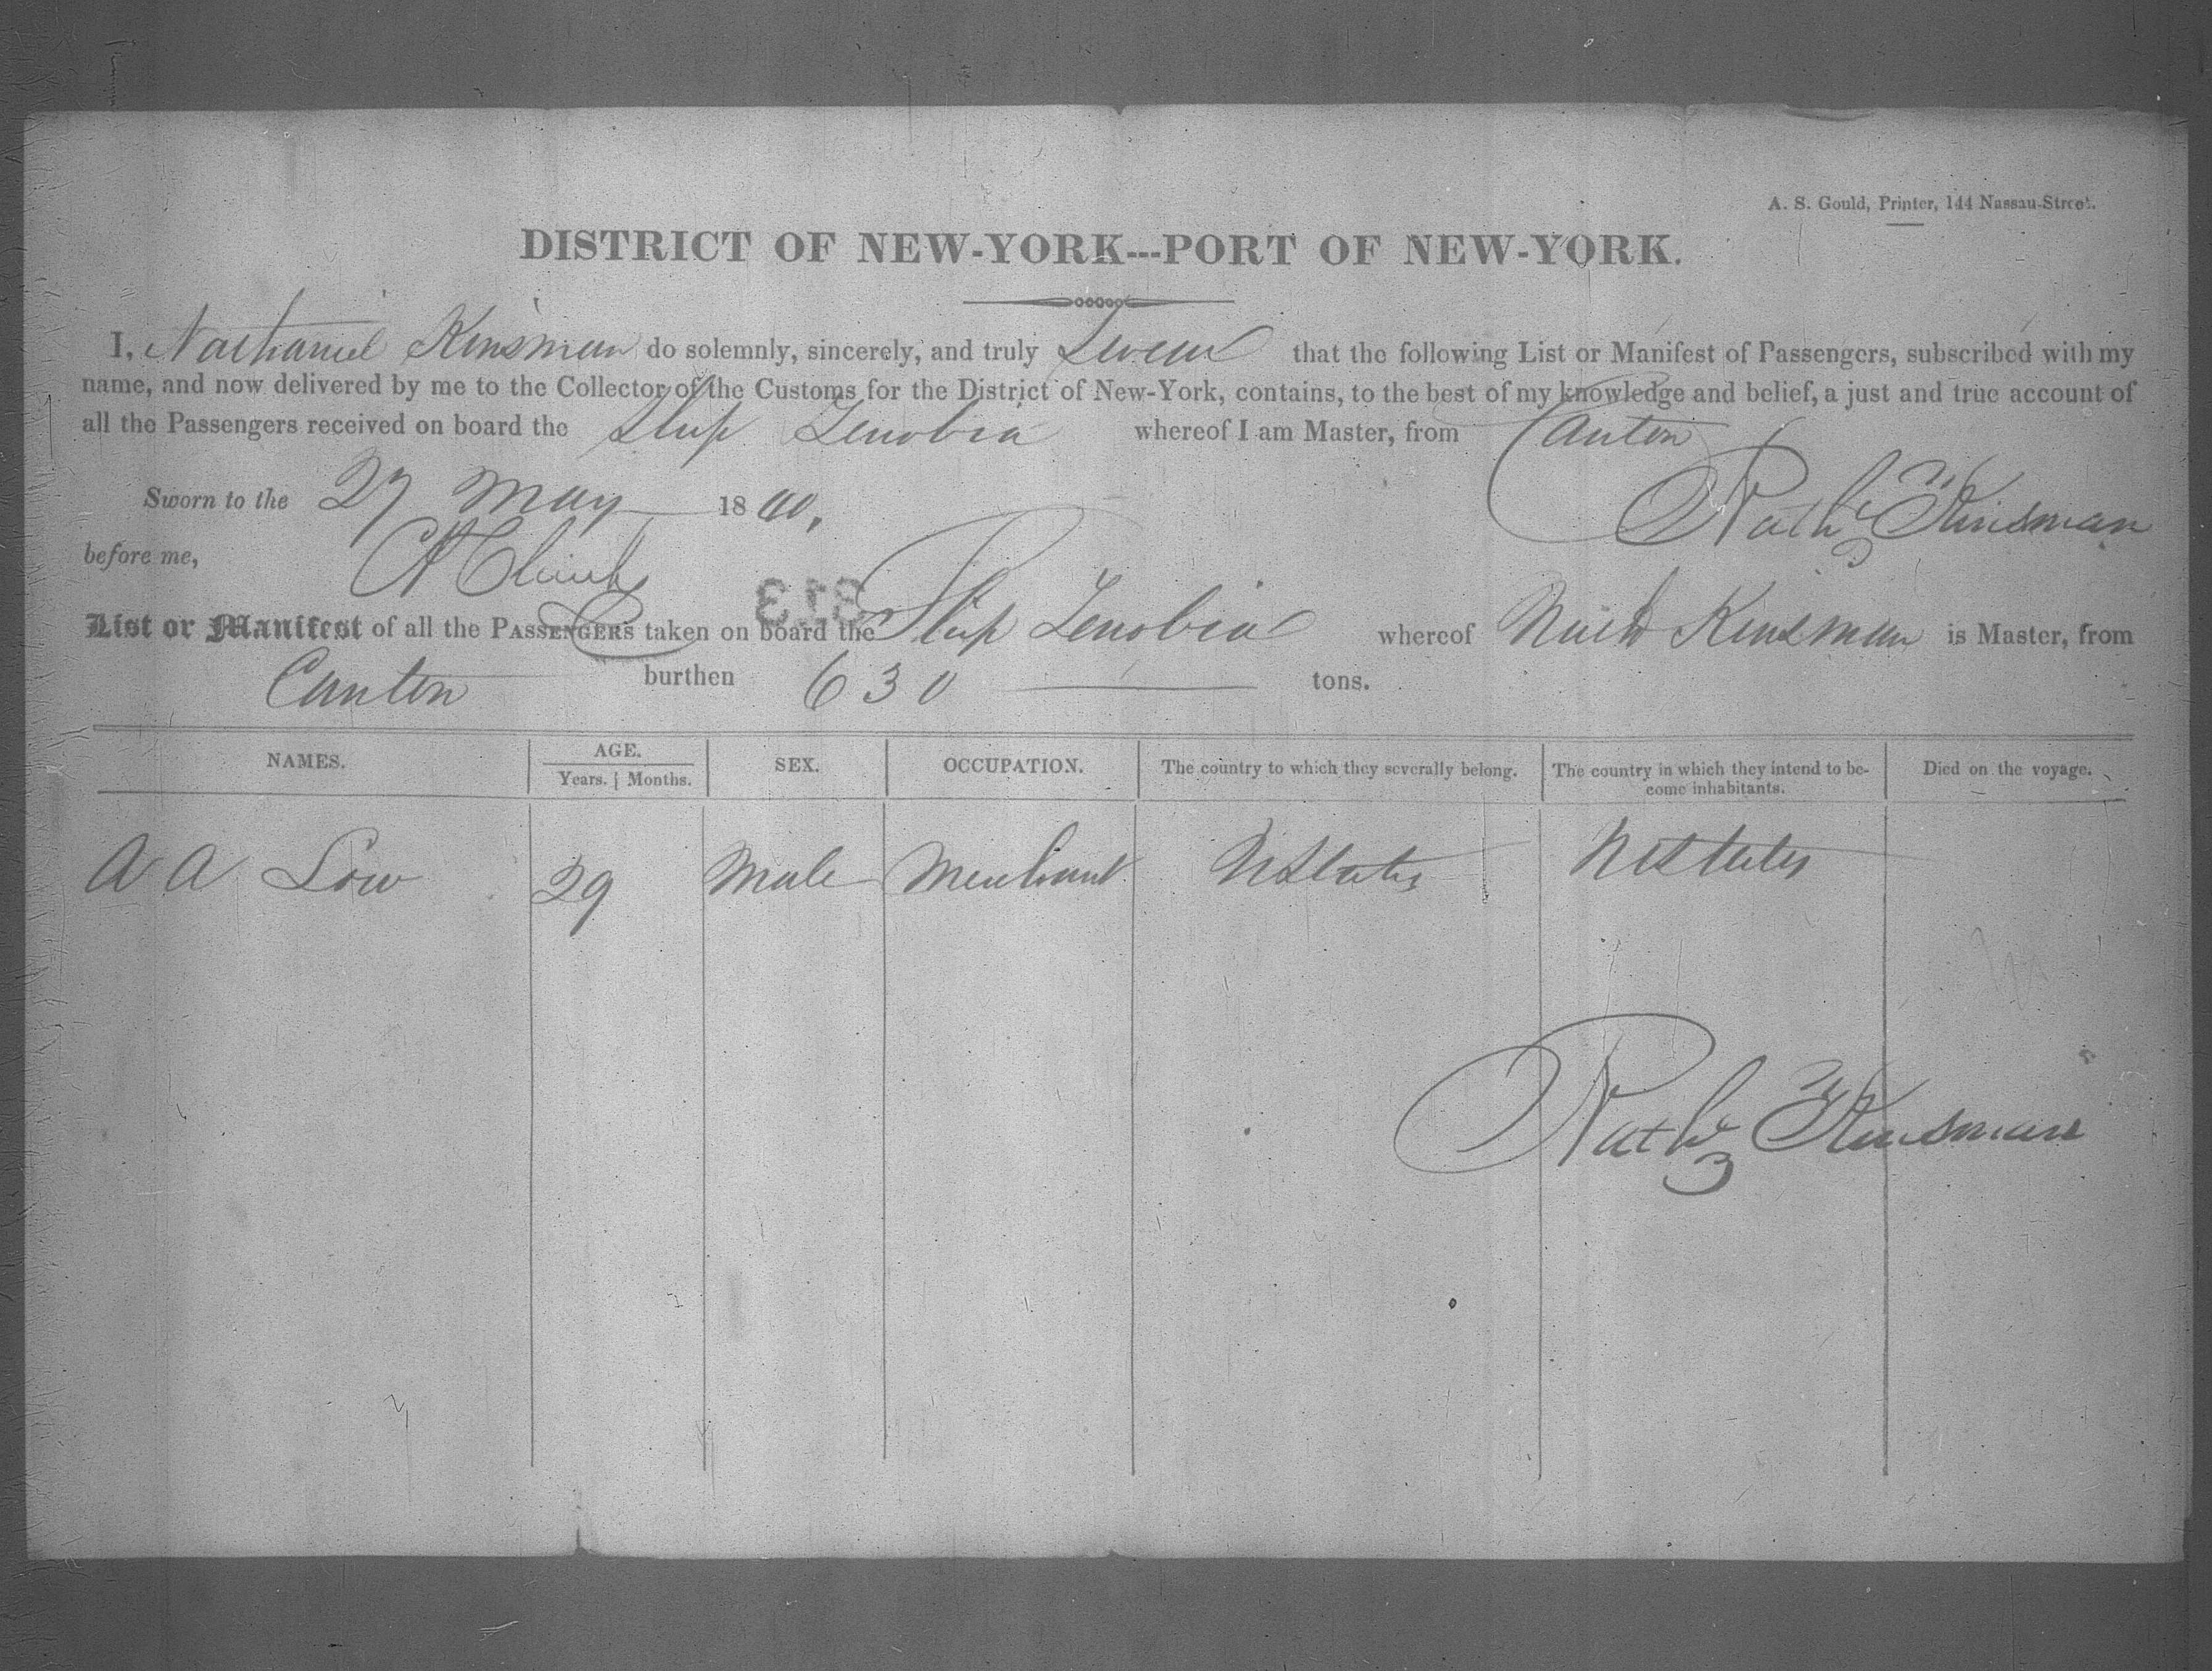 A. S. Gould, Printer, 144 Nassau-Street.
DISTRICT OF NEW-YORK---PORT OF NEW-YORK.
I, Nathaniel Kinsman do solemnly, sincerely, and truly Swear that the following List or Manifest of Passengers, subscribed with my
name, and now delivered by me to the Collector of the Customs for the District of New-York, contains, to the best of my knowledge and belief, a just and true account of
all the Passengers received on board the Ship Zenobia whereof I am Master, from Canton
Sworn to the 27 May 1840,
Nathl Kinsman
before me,
List or Manifest of all the PASSENGERS taken on board the Ship Zenobia whereof Nath Kinsman is Master, from
Canton burthen 630 tons.
NAMES. AGE. SEX. OCCUPATION. The country to which they severally belong. The country in which they intend to be- Died on the voyage.
Years. Months. come inhabitants.
A A Low 29 Male Merchant UStates UStates
Nathl Kinsman